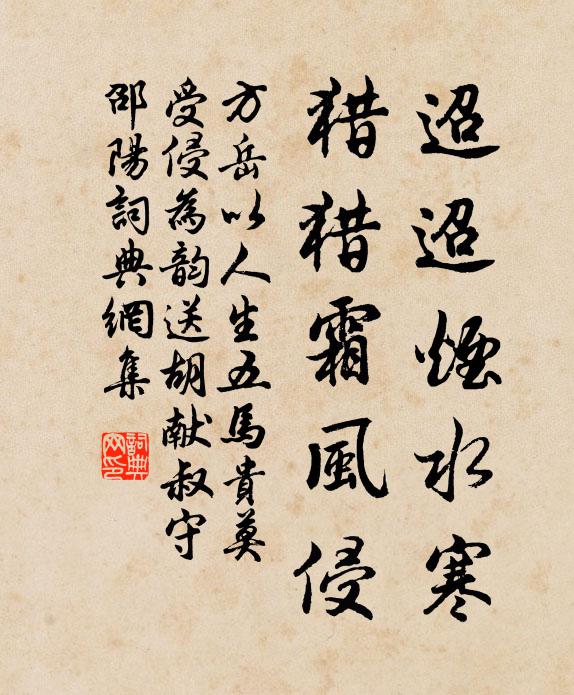 迢迢煙水寒
猎猎霜風侵
方岳以人生五馬貴莫
受侵為韵送胡献叔守
邵陽詞典網集
詞典
网印